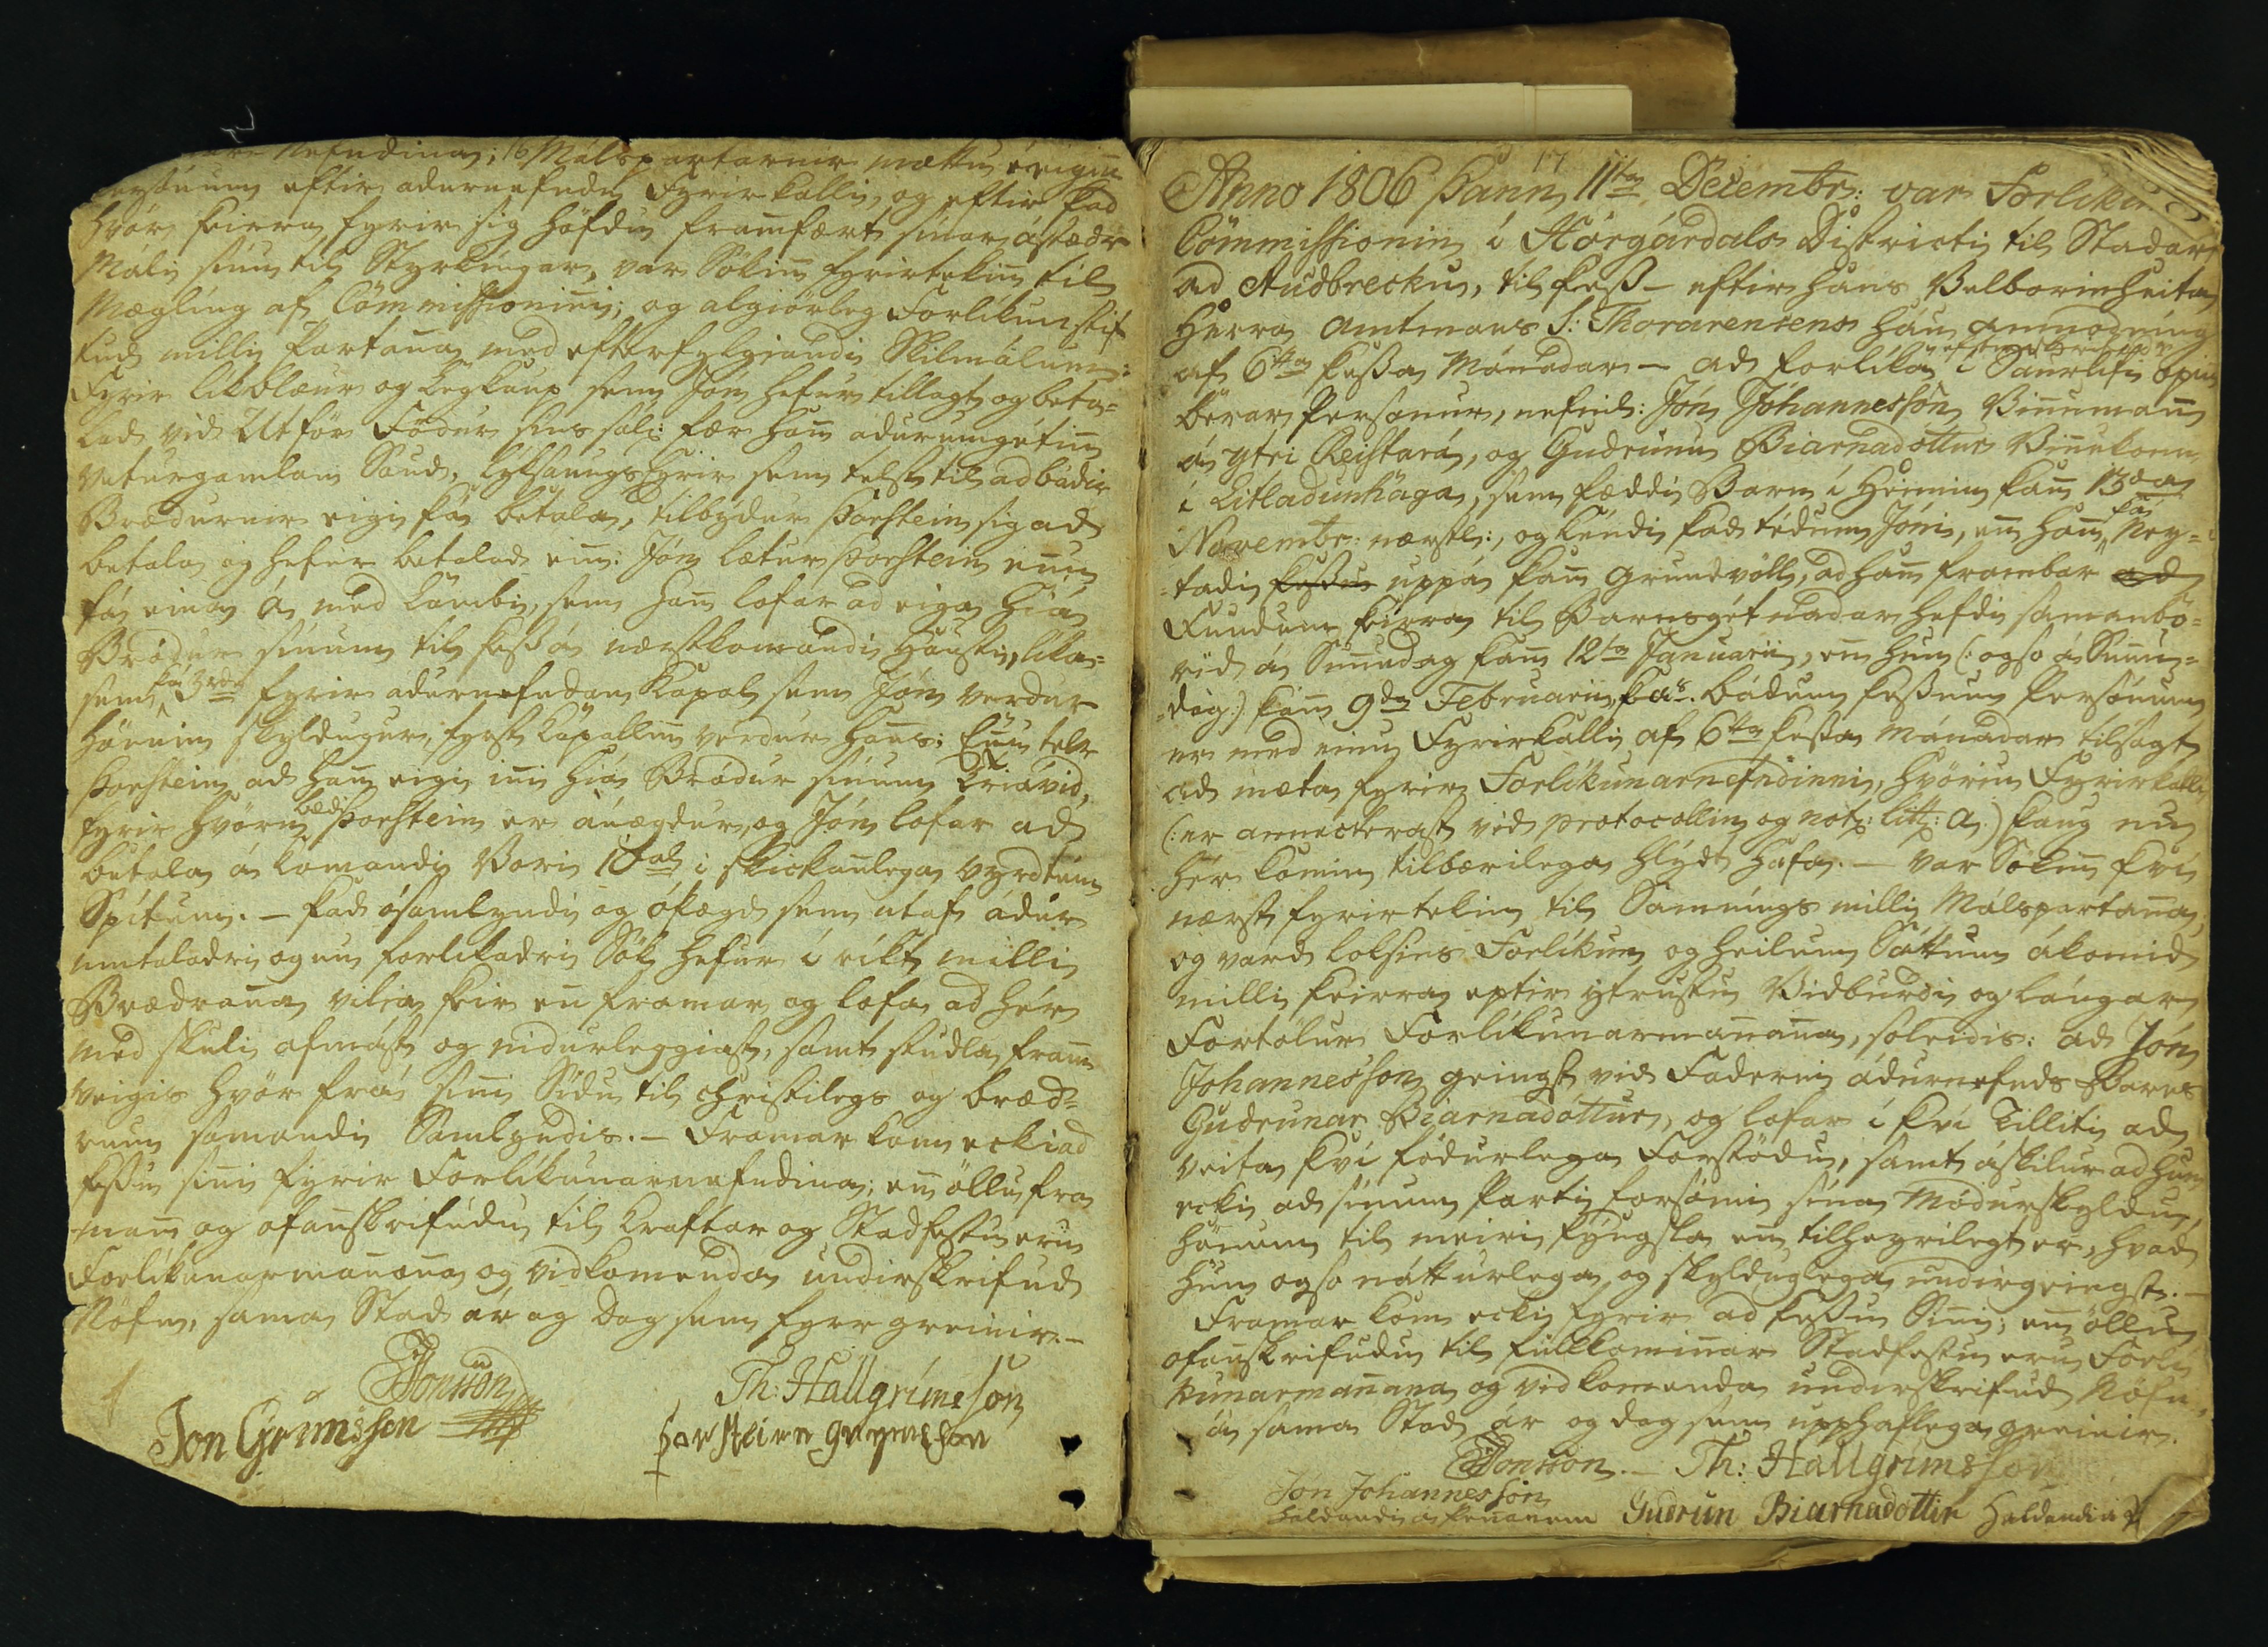 Nefndina; Málspartarnir mættu í eigin
persónum eftir adurnefndu Fyrirkalli, og eftir þad
hvör þeirra fyrir sig höfdu framfært sínar ástædr
Máli sínu til Styrkingar, var Sökin fyrirtekin til
Mægling af Commissioninni; og algiörleg Forlíkun stift
ud milli Partana med eftirfylgiandi Skilmálum:
Fyrir líkblæur og Legkaup sem Jón hefur tillagt og beta=
lad vid Utför Födur síns sál: fær hann adurumgétinn
Veturgamlan Saud, Lÿksaungseyrir sem telst til ad bádir
Brædurnir eigi þá betala, tilbýdur Þorsteinn sig ad
betala og hefur betalad einn: Jón lætur Þorstein enn
fá eina Á med Lambi, sem hann lofar ad eiga hiá
Bródur sínum til þess á næstkomandi Hausti, líka=
sem þá 3rdl fyrir adurnefndan Kapal sem Jón verdur
hönum skyldugur, fyrst Kapallinn verdur hans; Enn telr
Þorsteinn ad hann eigi inni hiá Bródur sínum Triávid,
fyrir hvörn bædi Þorsteinn er ánægdur, og Jón lofar ad
betala á komandi Vori 10 al: í skickanlega vyrdtum
Spítum. – Þad ósamlyndi og óþægd sem utaf ádur
umtaladri og nu forlíkadri Sök hefur í ríkt milli
Brædrana vilia þeir enn framar og lofa ad hér
med skuli afmást og nidurleggiast, samt studla fram
veigis hvör frá sinni Sídu til christilegs og bræd=
rum sæmandi Samlyndis. – Framar kom ecki ad
þessu sinni fyrir Forlíkunarnefndina; enn öllu fra
man og ofanskrifudu til Kraftar og Stadfestu eru
Forlíkunarmanana og vidkomenda undirskrifud
Nöfn, sama Stad ár og Dag sem fyrr greinir. –
EJonsson
Th: Hallgrimsson
Jon Grimsson
Þorsteirn Grimsson
17
Anno 1806 Þann 11ta Decembr: var Forlíkun
Commissionin i Hörgárdals Districti til Stadar
ad Audbrecku, til þess – eftir hans Velborinheita
Herra Amtmans S: Thorarensens háu anmodning
af 6tta þessa Mánadar – ad forlíka í Saurlifis opin
bérar Personur, nefnil: Jón Jóhannesson Vinnumann
á ytri Reistará, og Gudrúnu Biarnadottur Vinnukonu
i Litladunhaga, sem fæddi Barn í Heiminn þann 13da
Novembr: næstl:, og kéndi þad tédum Jóni, enn hann þá Ney=
tadi þessu uppá þann Grundvöll, ad hann frambar ad
Fundum þeirra til Barnsgétnadar hefdi samanbo=
rid á Sunnudag þann 12ta Januarii, enn hun (: ogso á Sunnu=
dag:) þann 9da Februarii þ.á. bádum þessum Personum
er med einu Fyrirkalli af 6tta þessa Mánadar tilsagt
ad mæta fyrir Forlíkunarnefndinni, hvöriu Fyrirkalli
(: er annecterast vid protocollinn og not: litt: a.) þaug nu
hér komin tilbærilega hlýdt hafa. – var Sökin því
nærst fyrirtekin til Samnings milli Málspartana,
og vard loksins Forlíkun og heilum Sáttum ákomid
milli þeirra eptir ytrustu Vidburdi og lángar
Fortölur Forlíkunarmanana, soleidis: ad Jón
Johannesson geingst vid Faderni ádurnefnds Barns
Gudrunar Biarnadóttur, og lofar í því Tilliti ad
veita því födurlega Forstödu, samt áskilur ad hun
ecki ad sínum Parti forsómi sína Módurskyldu,
hönum til meiri þýngsla enn tilheyrilegt er, hvad
hun ogso nátturlega og skylduglega undirgeingst. –
Framar kom ecki fyrir ad þessu Sinni; enn öllu
ofanskrifudu til fullkominnar Stadfestu eru Forlí
kunarmanana og vidkomenda underskrifud Nöfn,
á sama Stad ár og dag sem upphaflega greinir.
EJonsson. – Th: Hallgrimsson
Jón Johannesson
haldandi á Pennanum Gudrun Biarnadottir haldandi á P